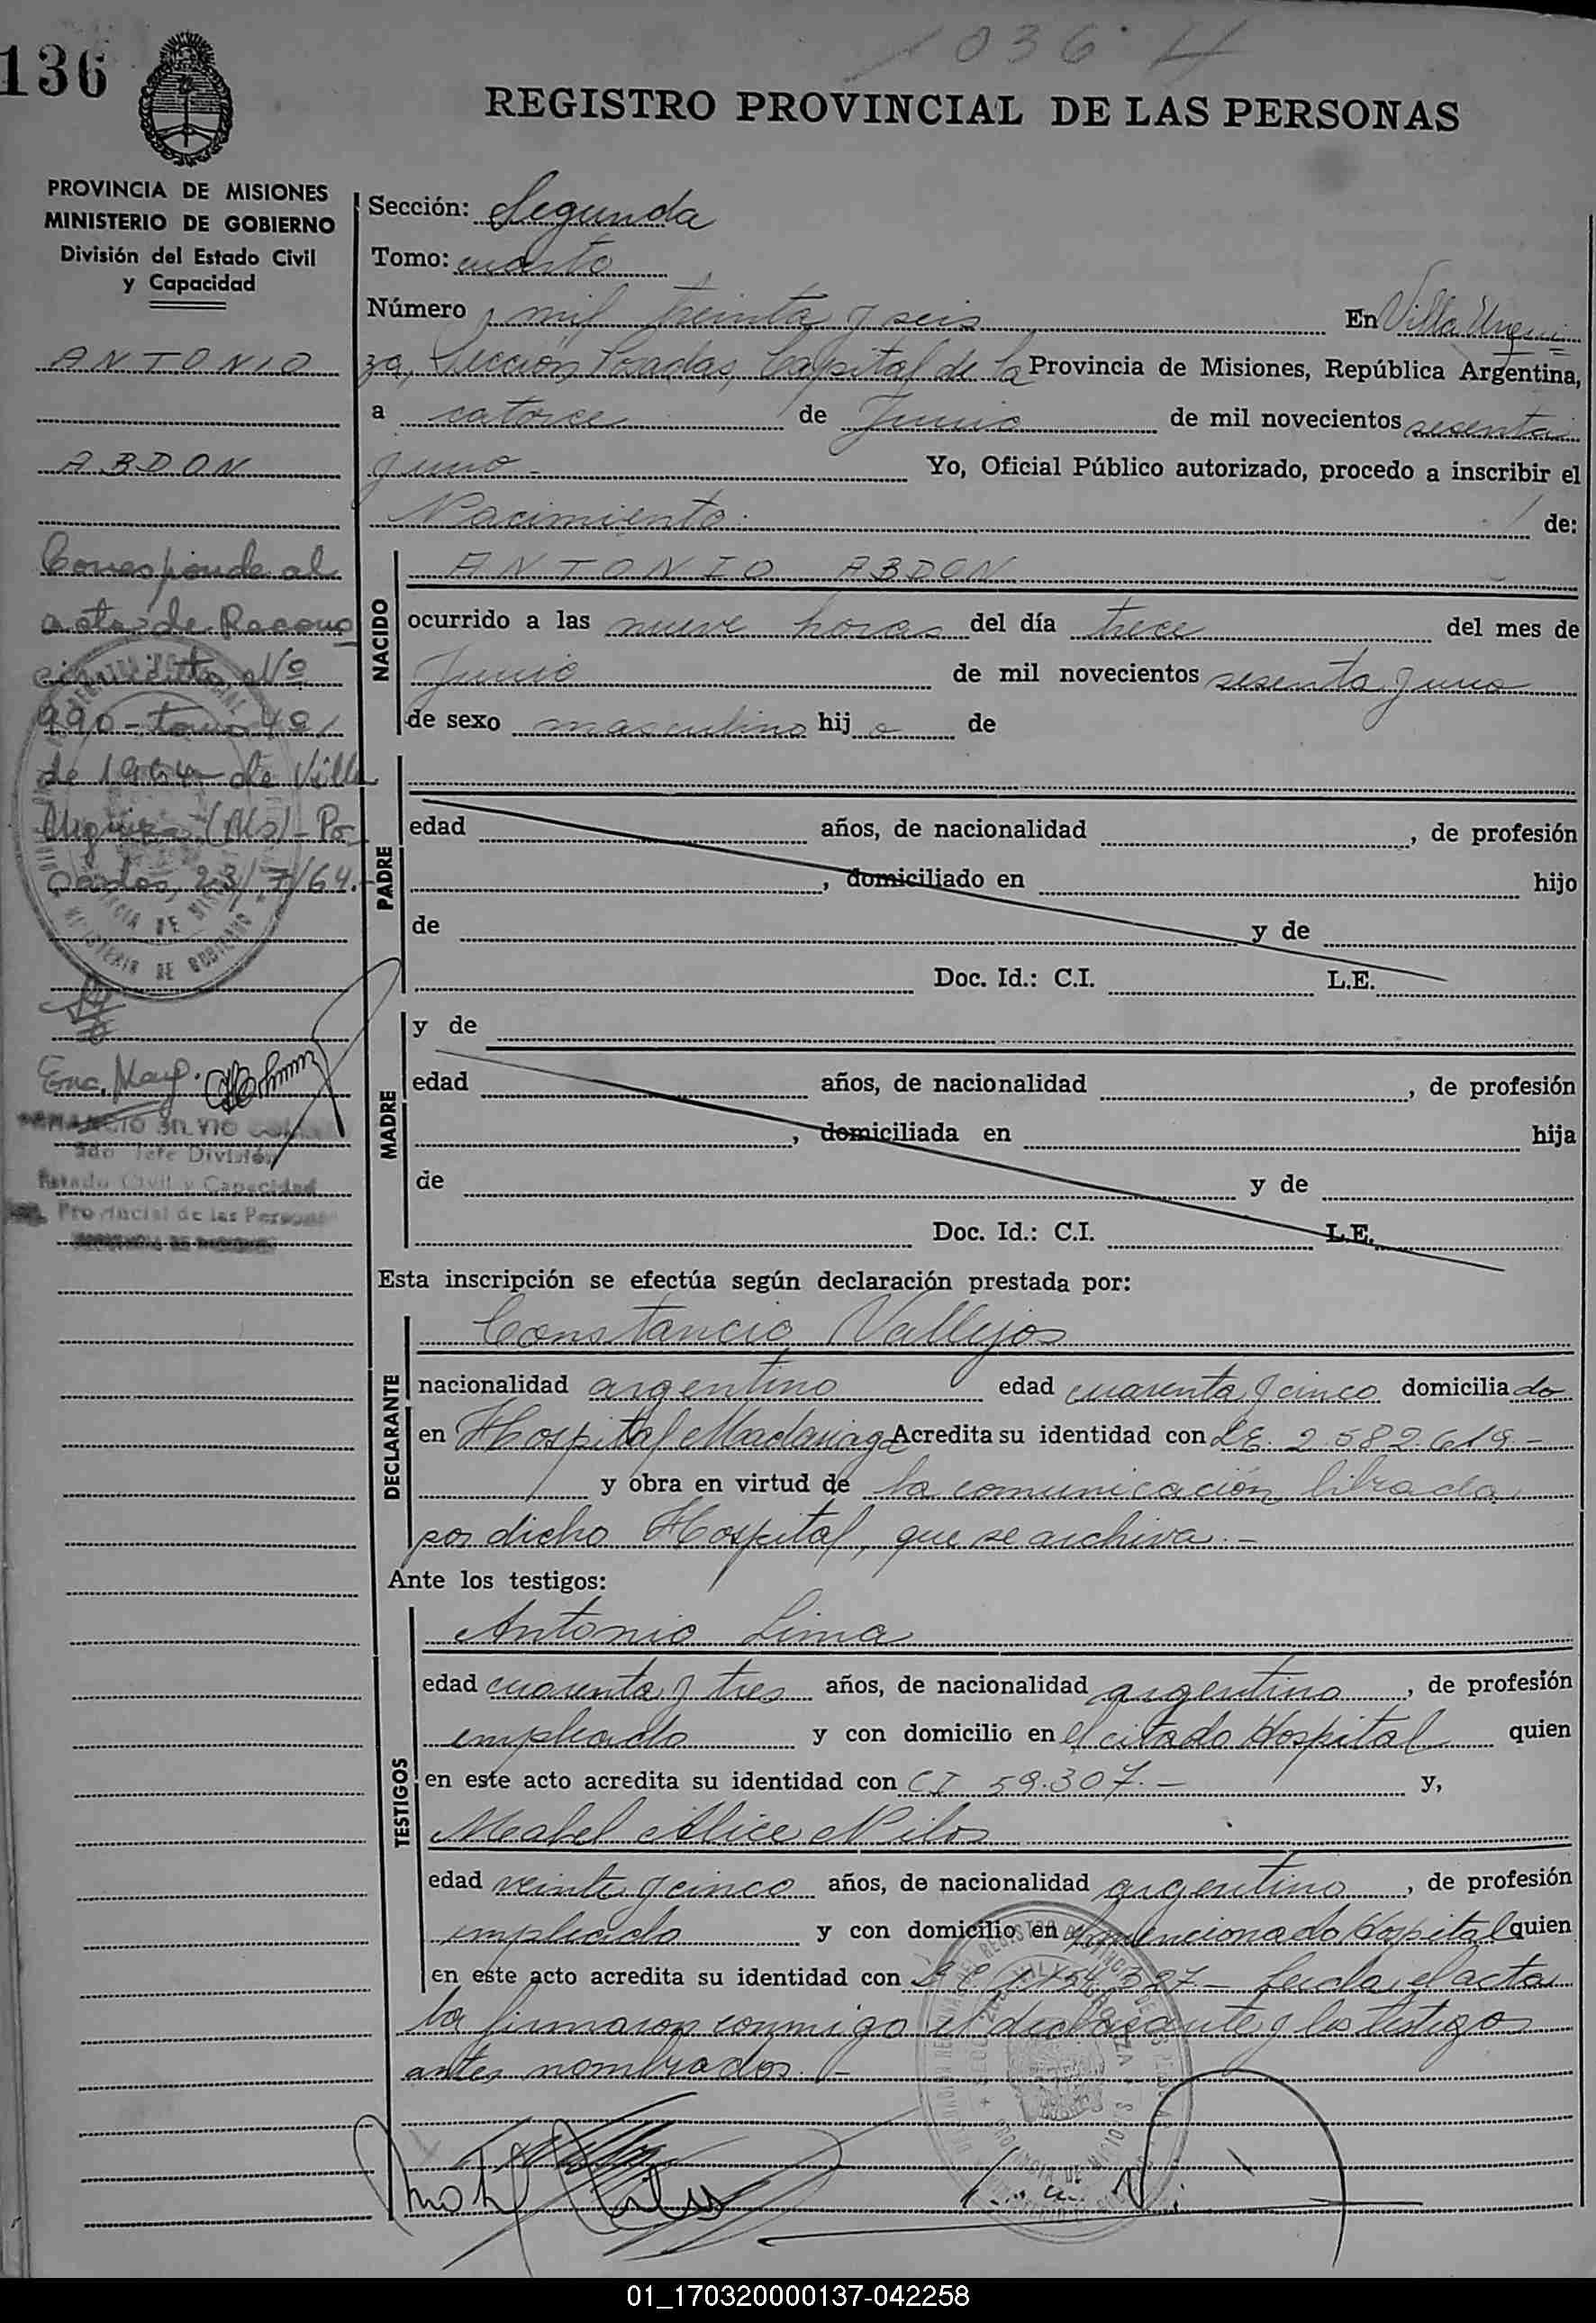 1036
136
REGISTRO PROVINCIAL DE LAS PERSONAS
PROVINCIA DE MISIONES
MINISTERIO DE GOBIERNO
División del Estado Civil
y Capacidad
ANTONIO
ABDON
Corresponde al
acta de Recono
cimiento Nº
990 - tomo 4º,
de 1964 - de Villa
Urquiza (Ms) - Po
sadas, 23/7/64.-
Enc. Mayo.
SILVIO
2do Jefe División
Estado Civil y Capacidad
Provincial de las Personas
Sección: Segunda
Tomo: cuarto
Número mil treinta y seis En Villa Urqui
za, Sección Posadas, Capital de la Provincia de Misiones, República Argentina,
a catorce de Junio de mil novecientos sesenta
y uno.- Yo, Oficial Público autorizado, procedo a inscribir el
Nacimiento de:
NACIDO
ANTONIO ABDON
ocurrido a las nueve horas del día trece del mes de
Junio de mil novecientos sesenta y uno
de sexo masculino hijo de
PADRE
edad años, de nacionalidad , de profesión
, domiciliado en hijo
de y de
Doc. Id.: C.I. L.E.
MADRE
y de
edad años, de nacionalidad , de profesión
, domiciliada en hija
de y de
Doc. Id.: C.I. L.E.
Esta inscripción se efectúa según declaración prestada por:
DECLARANTE
Constancio Vallejos
nacionalidad argentino edad cuarenta y cinco domiciliado
en Hospital Madariaga Acredita su identidad con LE. 2.582.619-
y obra en virtud de la comunicación librada
por dicho Hospital, que se archiva.-
Ante los testigos:
TESTIGOS
Antonio Lima
edad cuarenta y tres años, de nacionalidad argentino, de profesión
empleado y con domicilio en el citado Hospital quien
en este acto acredita su identidad con CI 59.307.- y,
Mabel Alice Nilos
edad veinte y cinco años, de nacionalidad argentino, de profesión
empleado y con domicilio en el mencionado Hospital quien
en este acto acredita su identidad con Leída el acta
la firmaron conmigo el declarante y los testigos
antes nombrados.-
01_170320000137-042258